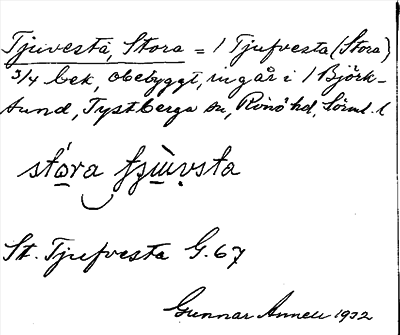 Tjuvesta, Stora = 1 Tjufvesta (Stora)
3/4 bek, obebyggt, ingår i 1 Björk-
sund, Tystberga sn, Rönö hd, Sörml. l
stora
St. Tjufvesta G. 67
Gunnar Annell 1932